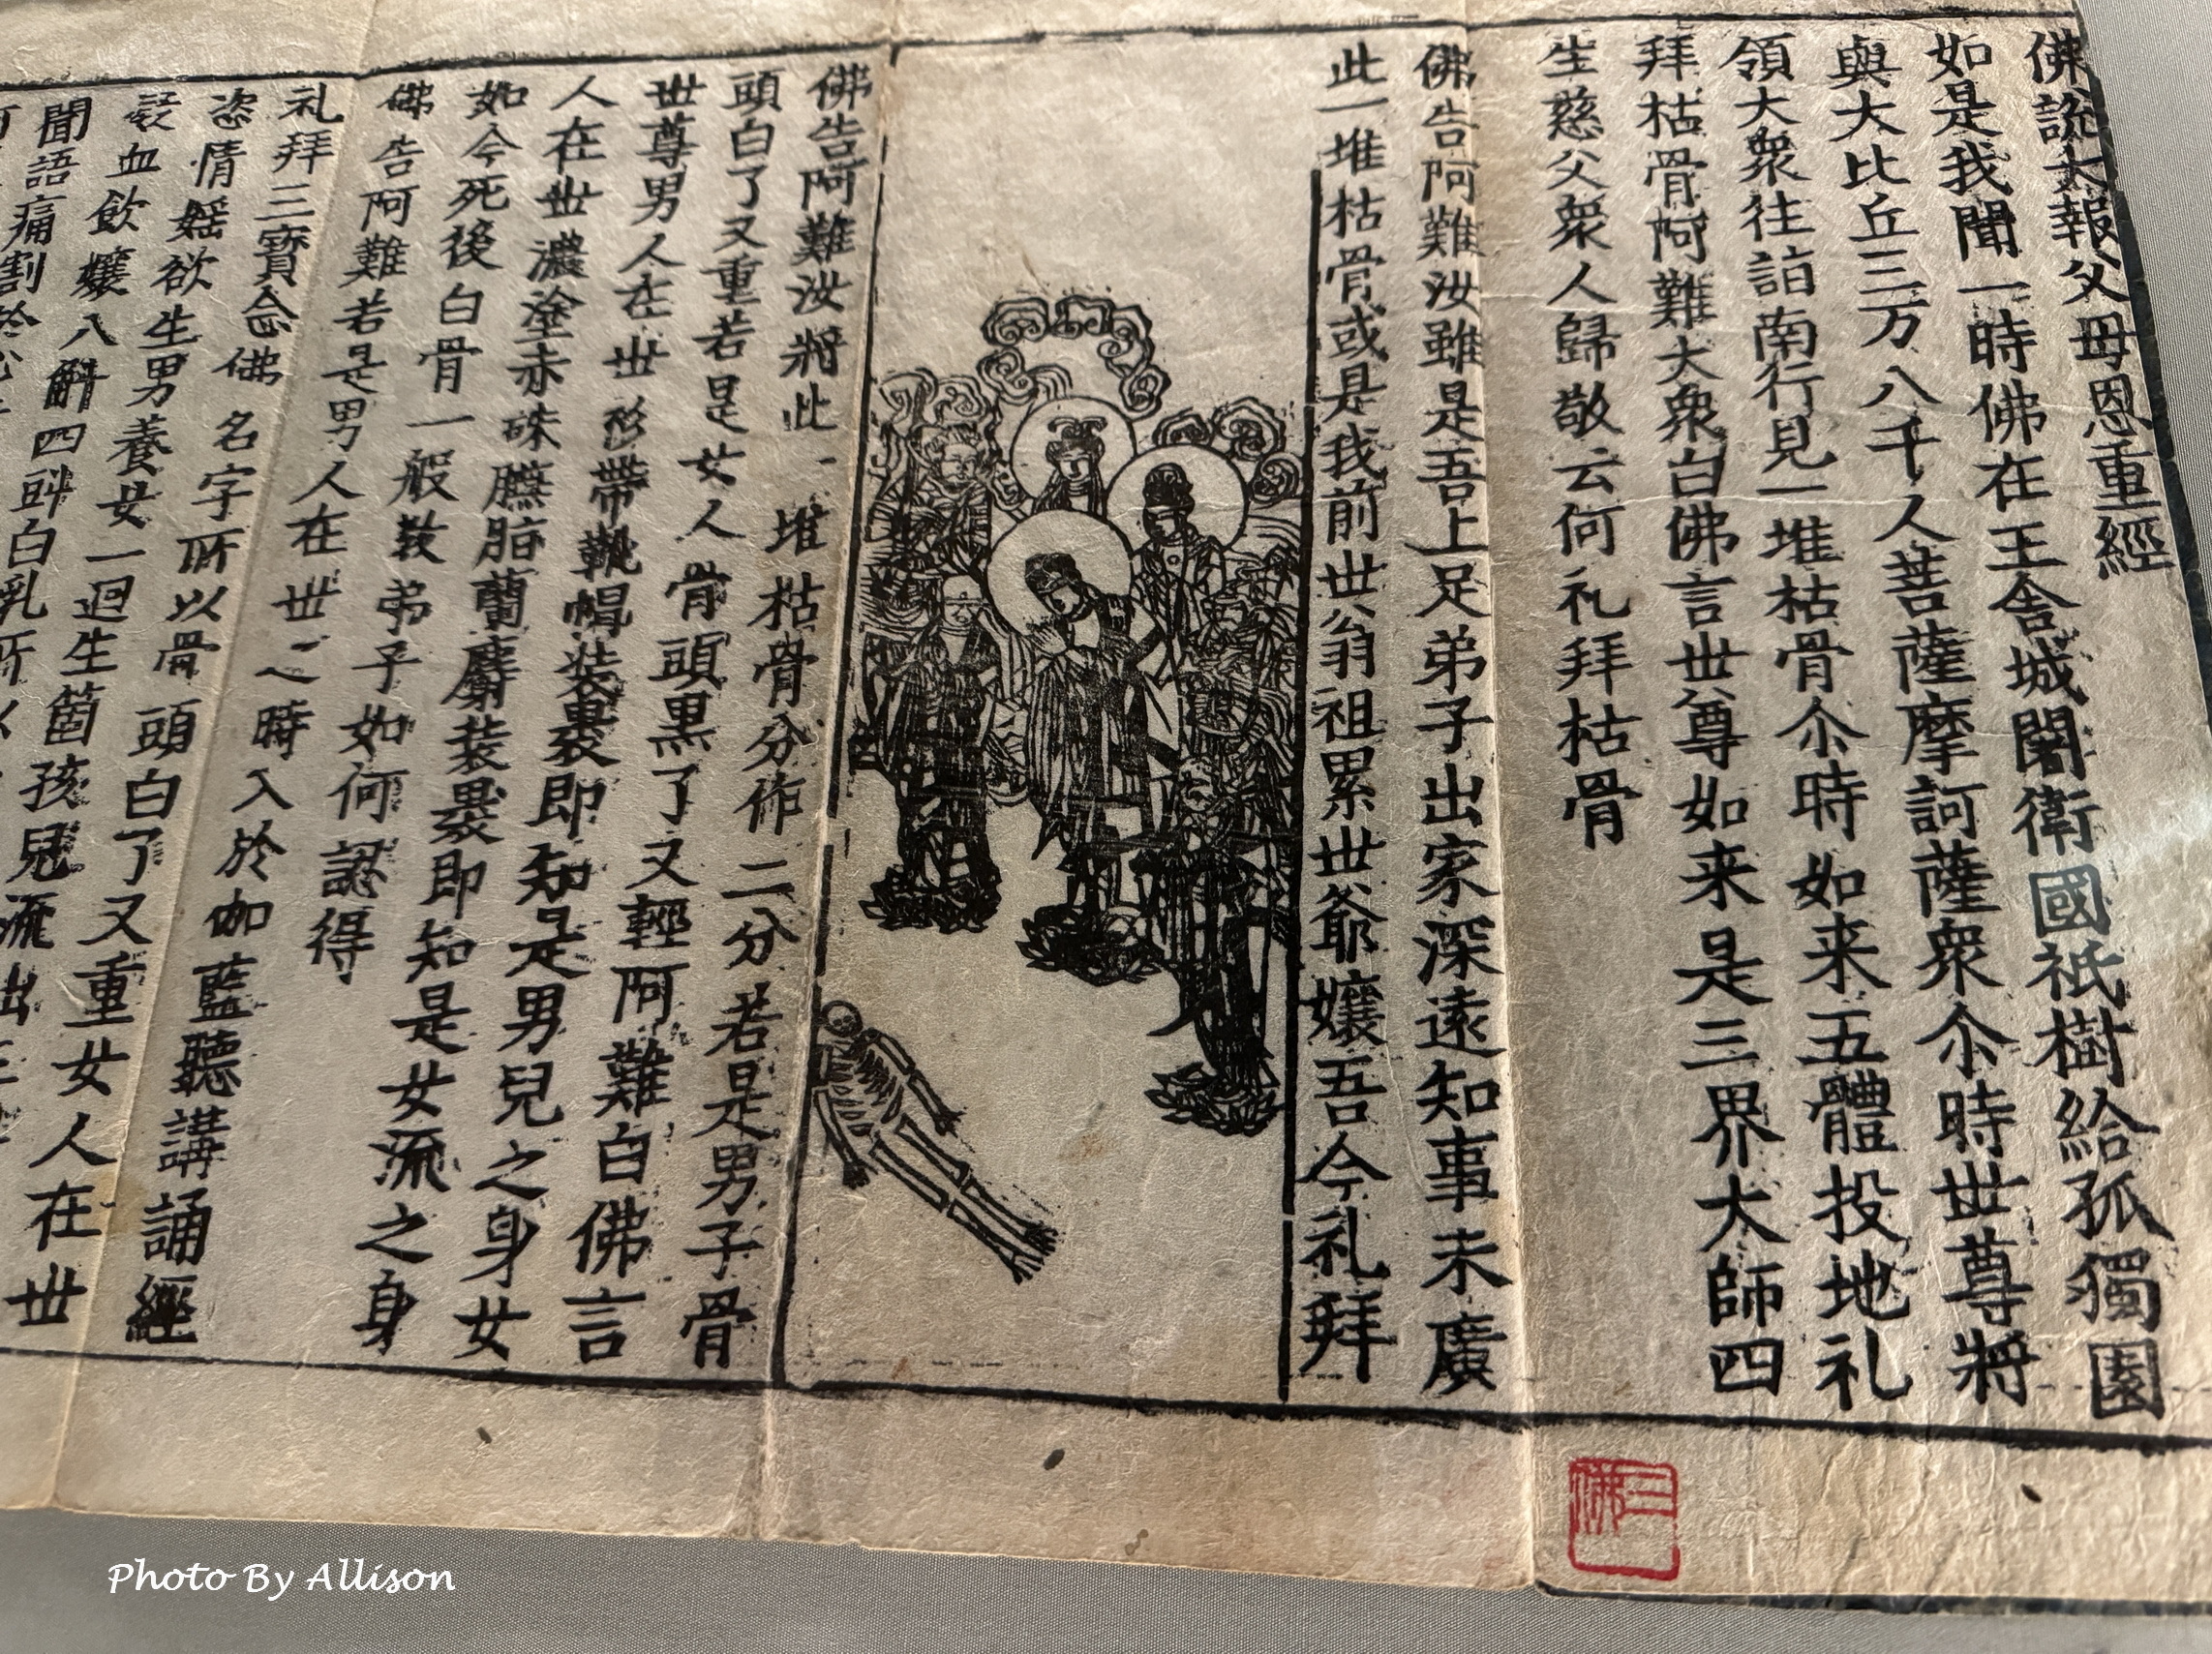 佛說大報父母恩重經
如是我聞一時佛在王舍城闍衛國祇樹給孤獨園
與大比丘三万八千人菩薩摩訶薩衆尒時世尊將
領大衆往詣南行見一堆枯骨尒時如来五體投地礼
拜枯骨阿難大衆白佛言世尊如来是三界大師四
生慈父衆人歸敬云何礼拜枯骨
佛告阿難汝雖是吾上足弟子出家深遠知事未廣
此一堆枯骨或是我前世翁祖累世爺孃吾今礼拜
佛告阿難汝將此一堆枯骨分作二分若是男子骨
頭白了又重若是女人骨頭黑了又輕阿難白佛言
世尊男人在世衫帶靴帽裝裹即知是男兒之身女
人在世濃塗赤硃臙脂蘭麝裝裹即知是女流之身
如今死後白骨一般教弟子如何認得
佛告阿難若是男人在世之時入於伽藍聽講誦經
礼拜三寶念佛名字所以骨頭白了又重女人在世
恣情婬欲生男養女一迴生箇孩兒流出
血飲孃八斛四㪷白乳所以
聞語痛割於
Photo By Allison